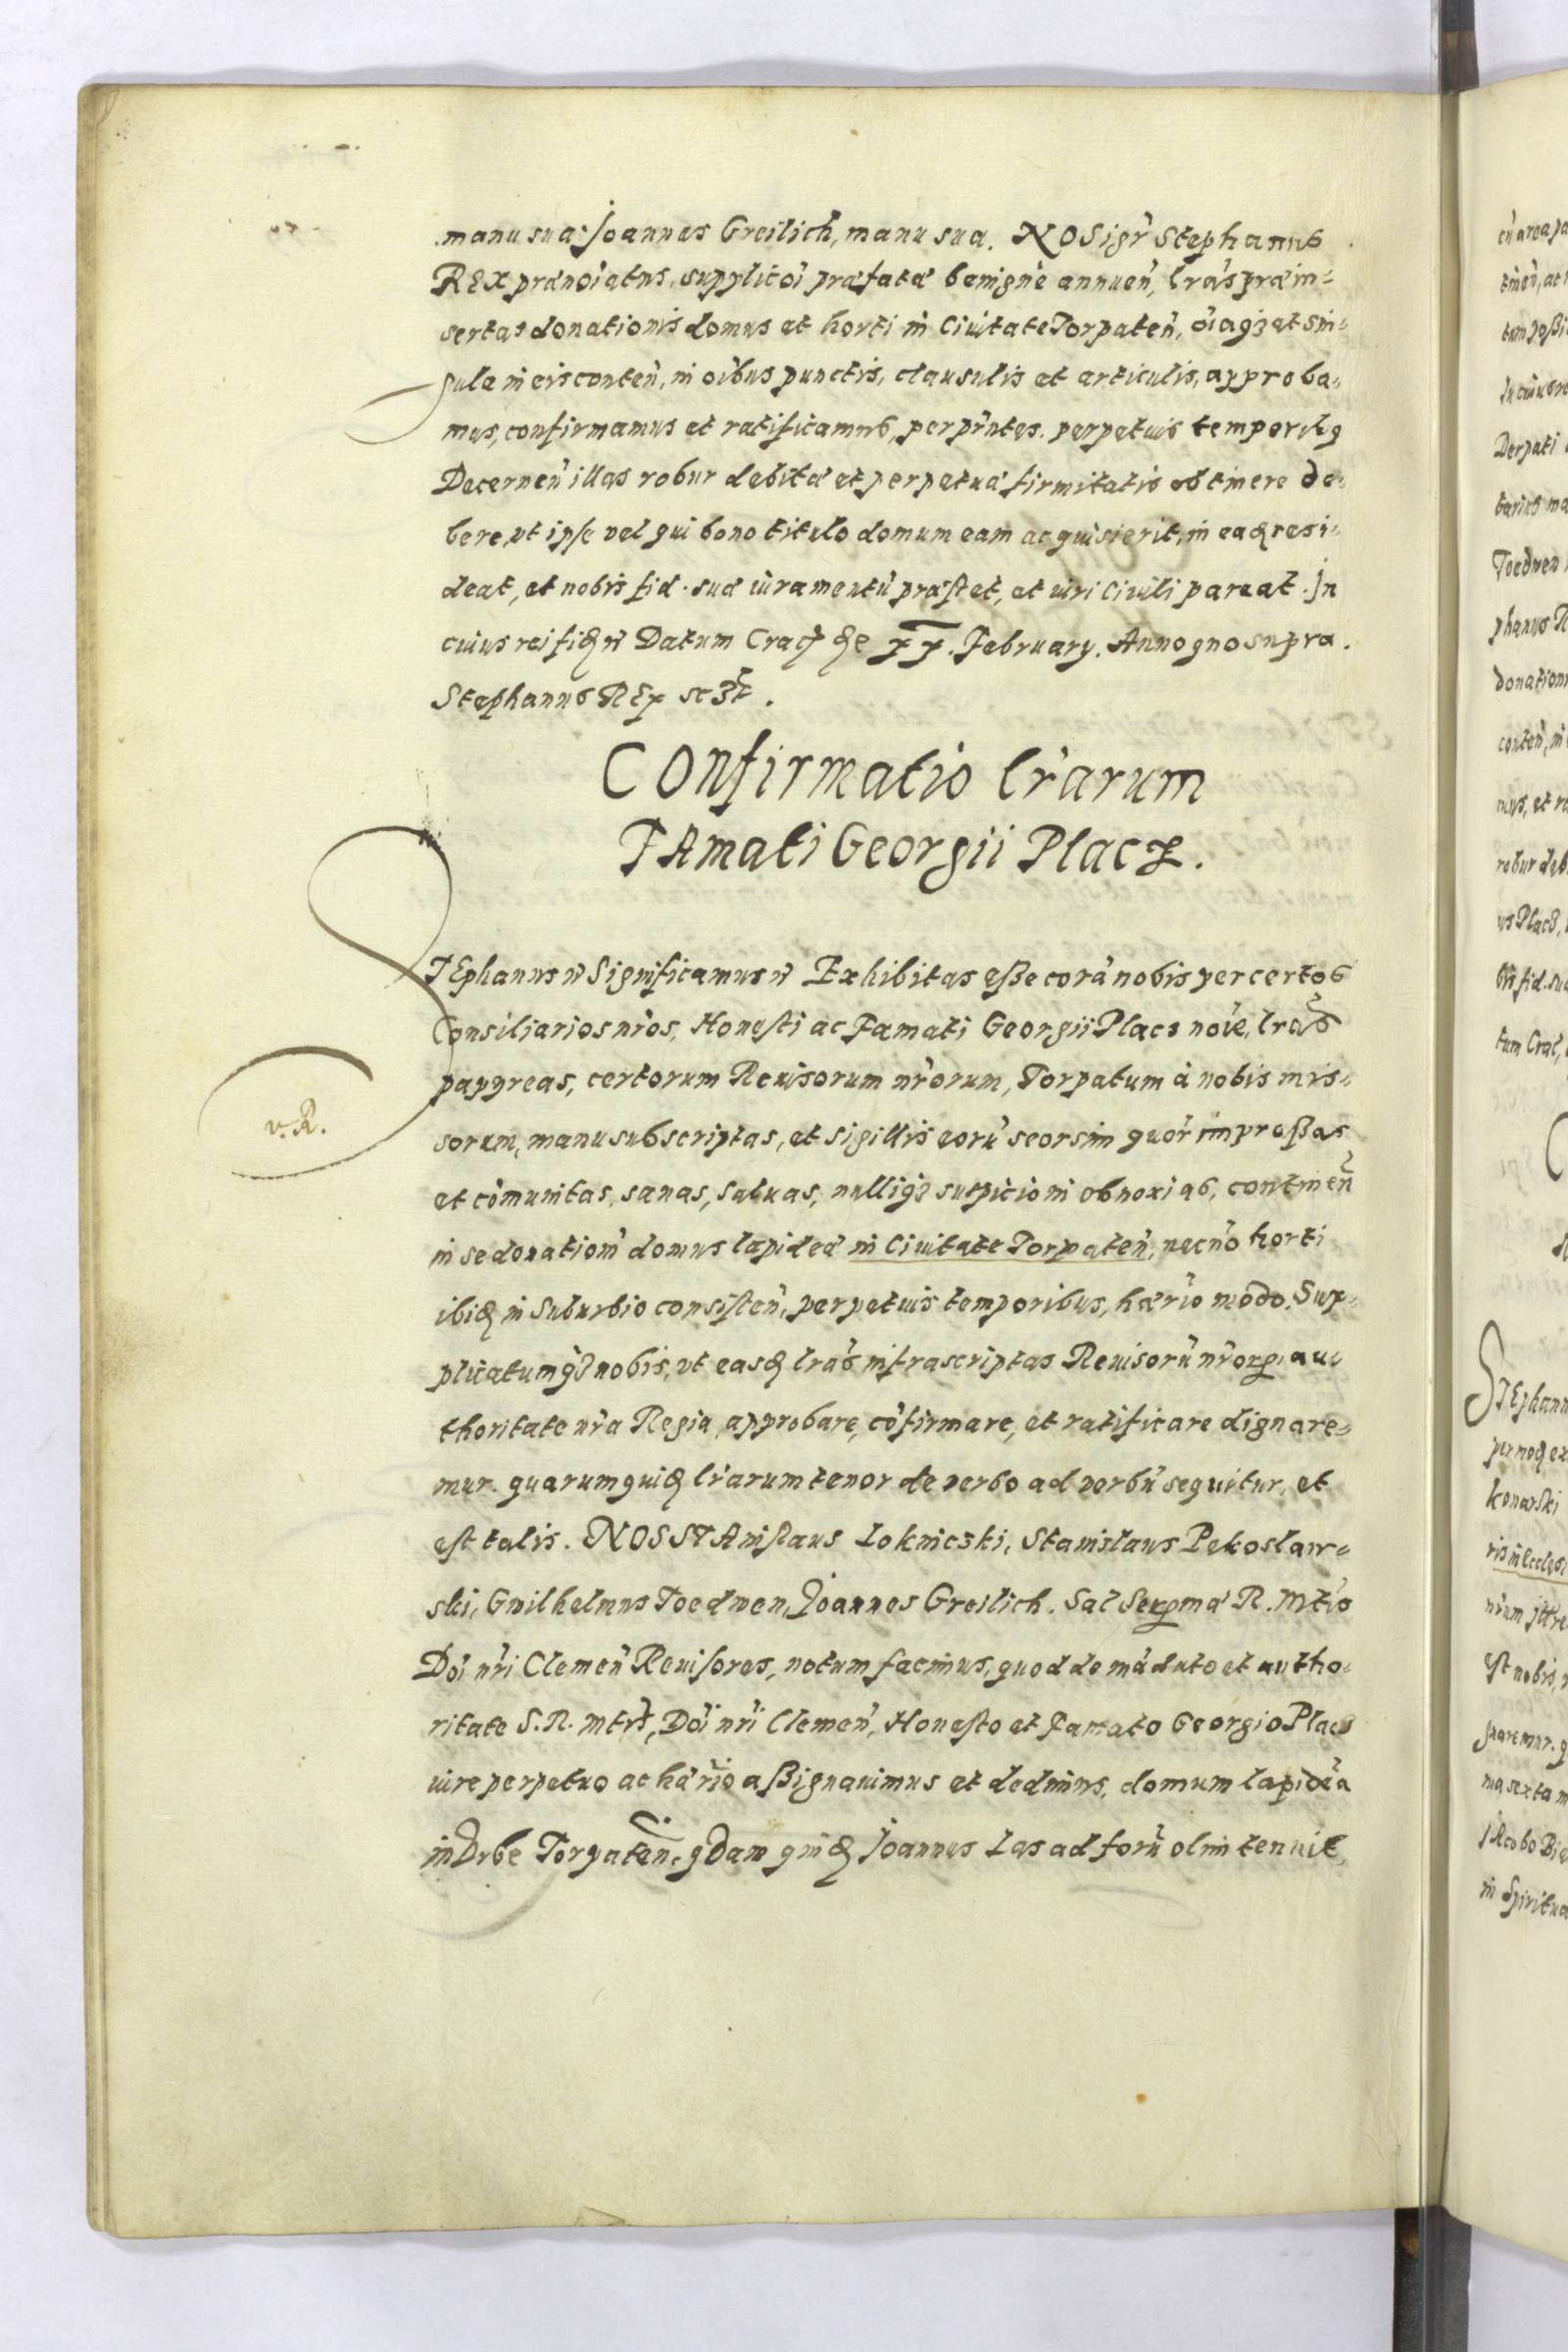 manu sua: Joannes Greilich, manu sua. NOS igr̃ Stephanus
REX prænoĩatus, supplicoĩ præfatæ benigne annuen̄, lrãs præin-
sertas donationis domus et horti in Civitate Torpaten̄, oĩaq3 et sin-
gula in eis conten̄, in oĩbus punctis, clausulis et articulis, approba-
mus, confirmamus et ratificamus, per pñtes. perpetuis temporibq
Decernen̄ illas robur debitæ et perpetuæ firmitatis obtinere de-
bere, vt ipse vel qui bono titulo domum eam acquisierit, in eaq resi-
deat, et nobis fid. suæ iuramentũ præstet, et iuri Ciuili pareat. In
cuius rei Datum Crac XX. February. Anno quo supra.
Stephanus REX sc3t.
COnfirmatio lr̃arum
FAmati Georgii Placz.
STEphanus Significamus Exhibitas eße corã nobis per certos
Consiliarios nr̃os, Honesti ac Famati Georgii Placz noĩe, lrãs
papyreas, certorum Reuisorum nr̃orum, Torpatum à nobis mis-
sorum, manu subscriptas, et sigillis eorũ seorsim quor̃ impreßas
et cõmunitas, sanas, saluas, nulliq3 suspicioni obnoxias, continen̄
in se donationẽ domus lapideæ in Ciuitate Torpaten̄, necño horti
ibid in Suburbio consisten̄, perpetuis temporibus, hærio modo. Sup-
plicatumq3 nobis, vt easd lrãs infrascriptas Reuisorũ nr̃or, au-
thoritate nr̃a Regia, approbare, cõfirmare, et ratificare dignare-
mur. quarumquid lr̃arum tenor de verbo ad verbũ sequitur, et
est talis. NOS STAnislaus Loknicski, Stanislaus Pekoslaw-
ski, Guilhelmus Toedwen, Joannes Greilich. Sac Sermæ R. Mtis
Doĩ nr̃i Clemen̄ Reuisores, notum facimus, quod de mãdato et autho-
ritate S. R. Mtis, Doĩ nr̃i Clemen̄, Honesto et Famato Georgio Placz
iure perpetuo ac hærio aßignauimus et dedimus, domum lapideã
in Vrbe Torpaten̄, qdam quid Joannes Las ad forũ olim tenuit,
v. R.